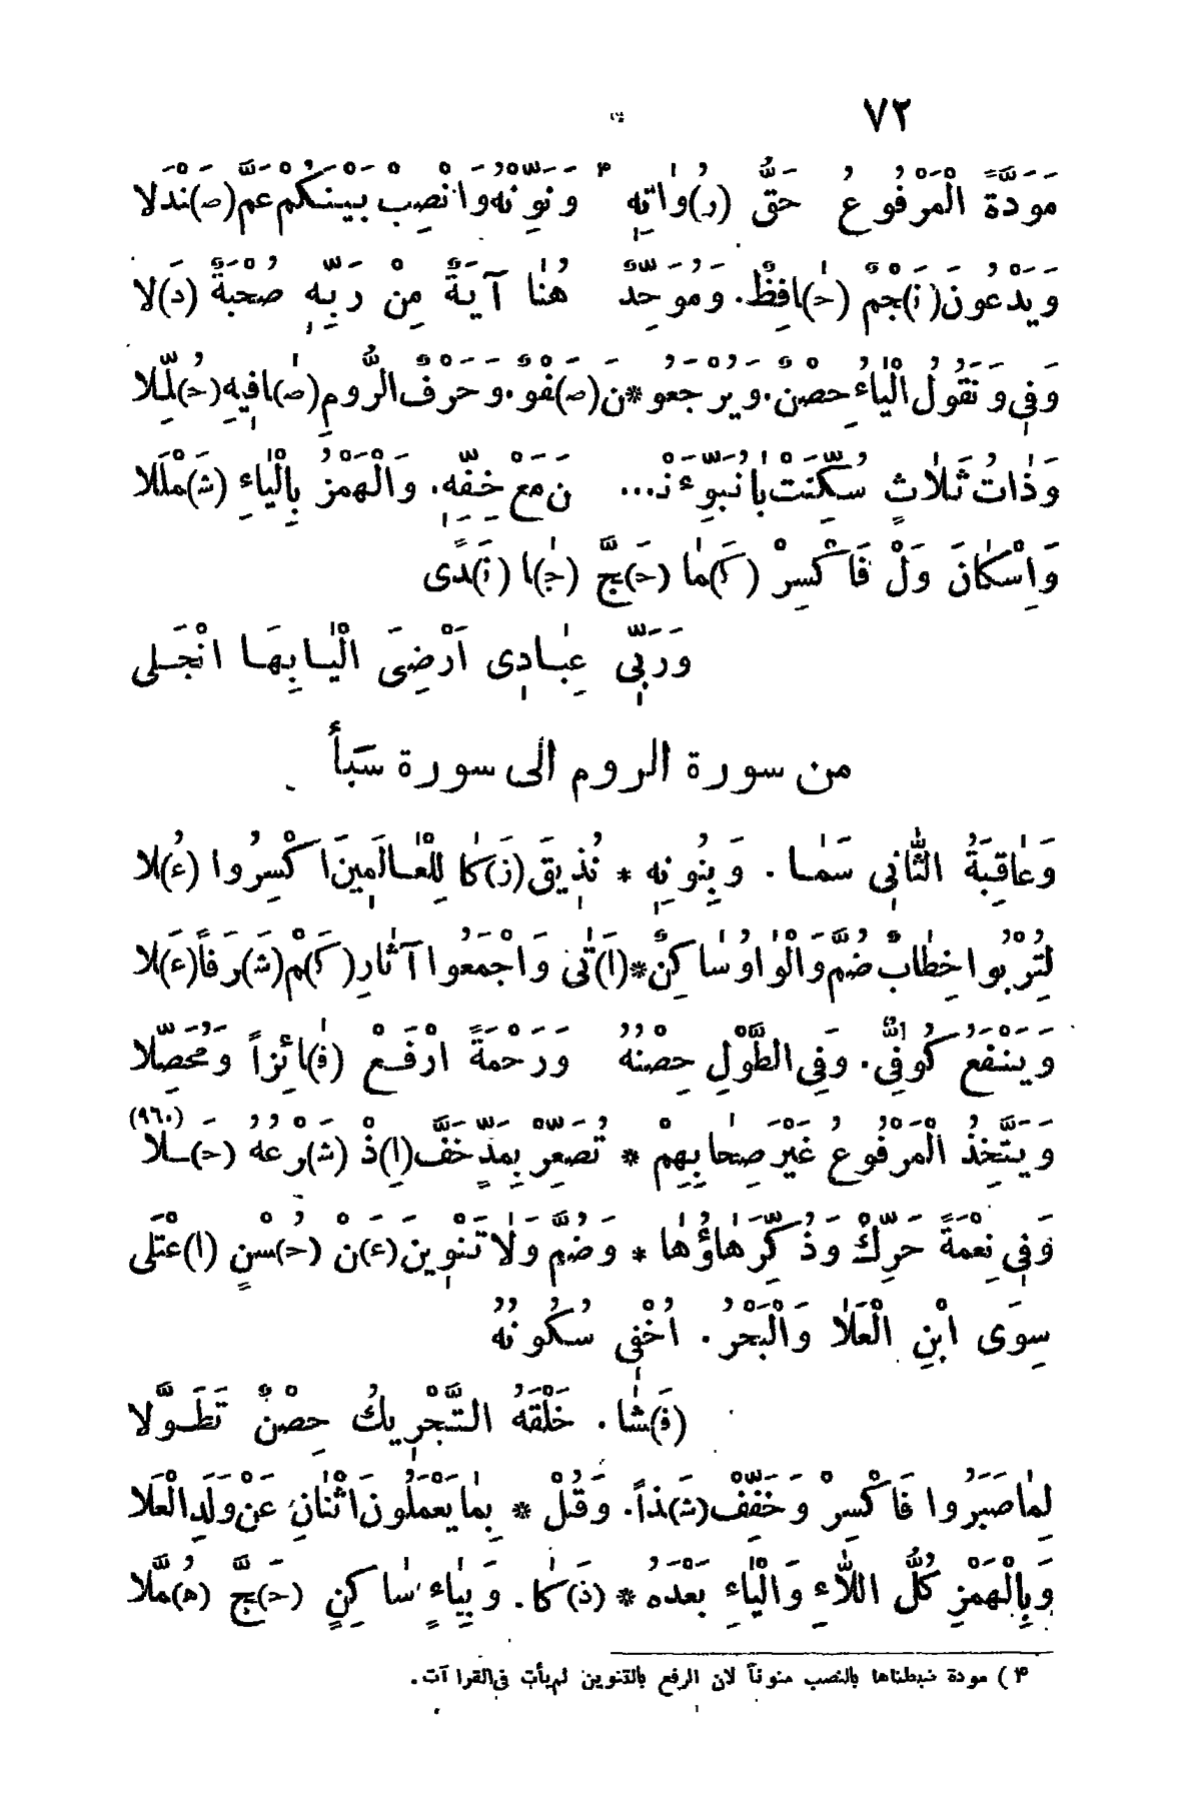 ٧٢
مَوَدَّةً الْمَرْفُوعُ حَقُّ (رُ)وٰاتِهِ ۴ وَنَوِّنْهُ وَانْصِبْ بَيْنَكُمْ عَمَّ (صَ)نْدَلا
وَيَدْعُونَ (نَ)جْمٌ (حٰ)افِظٌ. وَمُوَحِّدٌ هُنٰا آيَةٌ مِنْ رَبِّهِ صُحْبَةٌ (دَ)لا
وَفِي وَنَقُولُ الْيٰاءُ حِصْنٌ. وَيُرْجَعُو * نَ (صَ)فْوٌ. وَحَرْفُ الرُّومِ (صٰ)افِيهِ (حُ)لِّلا
وَذٰاتُ ثَلٰاثٍ سُكِّنَتْ بٰا نُبَوِّئَنْـ... نَ مَعْ خِفِّهِ. وَالْهَمْزُ بِالْيٰاءِ (شَ)مْلَلا
وَاِسْكٰانَ وَلْ فَاكْسِرْ (كَ)مٰا (حَ)جَّ (جٰ)ا (نَ)دًى
وَرَبِّي عِبٰادِى اَرْضِىَ الْيٰا بِهَا انْجَلى
من سورة الروم الى سورة سَبأ
وَعٰاقِبَةُ الثّٰانِي سَمٰا . وَبِنُونِهِ * نُذِيقَ (زَ)كٰا لِلْعٰالَمِينَ اكْسِرُوا (عُ)لا
لِتُرْبُوا خِطٰابٌ ضُمَّ وَالْوٰاوُ سٰاكِنٌ * (اَ)تٰى وَاجْمَعُوا آثٰارِ (كَ)مْ (شَ)رَفاً (عَ)لا
وَيَنْفَعُ كُوفِيٌّ. وَفِي الطَّوْلِ حِصْنُهُ وَرَحْمَةً ارْفَعْ (فٰ)ائِزاً وَمُحَصِّلا
(٩٦٠)
وَيَتَّخِذُ الْمَرْفُوعُ غَيْرَ صِحٰابِهِمْ * تُصَعِّرْ بِمَدٍّ خَفَّ (اِ)ذْ (شَ)رْعُهُ (حَ)ـلا
وَفِي نِعْمَةً حَرِّكْ وَذُكِّرَ هٰاؤُهٰا * وَضُمَّ وَلٰا تَنْوِينَ (عَ)نْ (حُ)سْنٍ (ا)عْتَلى
سِوَى ابْنِ الْعَلٰا وَالْبَحْرُ. اُخْفِي سُكُونُهُ
(فَ)شٰا. خَلْقَهُ التَّحْرِيكُ حِصْنٌ تَطَوَّلا
لِمٰا صَبَرُوا فَاكْسِرْ وَخَفِّفْ (شَ)ذاً. وَقُلْ * بِمٰا يَعْمَلُونَ اثْنٰانِ عَنْ وَلَدِ الْعَلا
وَبِالْهَمْزِ كُلُّ اللّاءِ وَالْيٰاءِ بَعْدَهُ * (ذَ)كٰا. وَبِيٰاءٍ سٰاكِنٍ (حَ)جَّ (هُ)مَّلا
۴) مودة ضبطناها بالنصب منوناً لان الرفع بالتنوين لم يأت في القراآت.